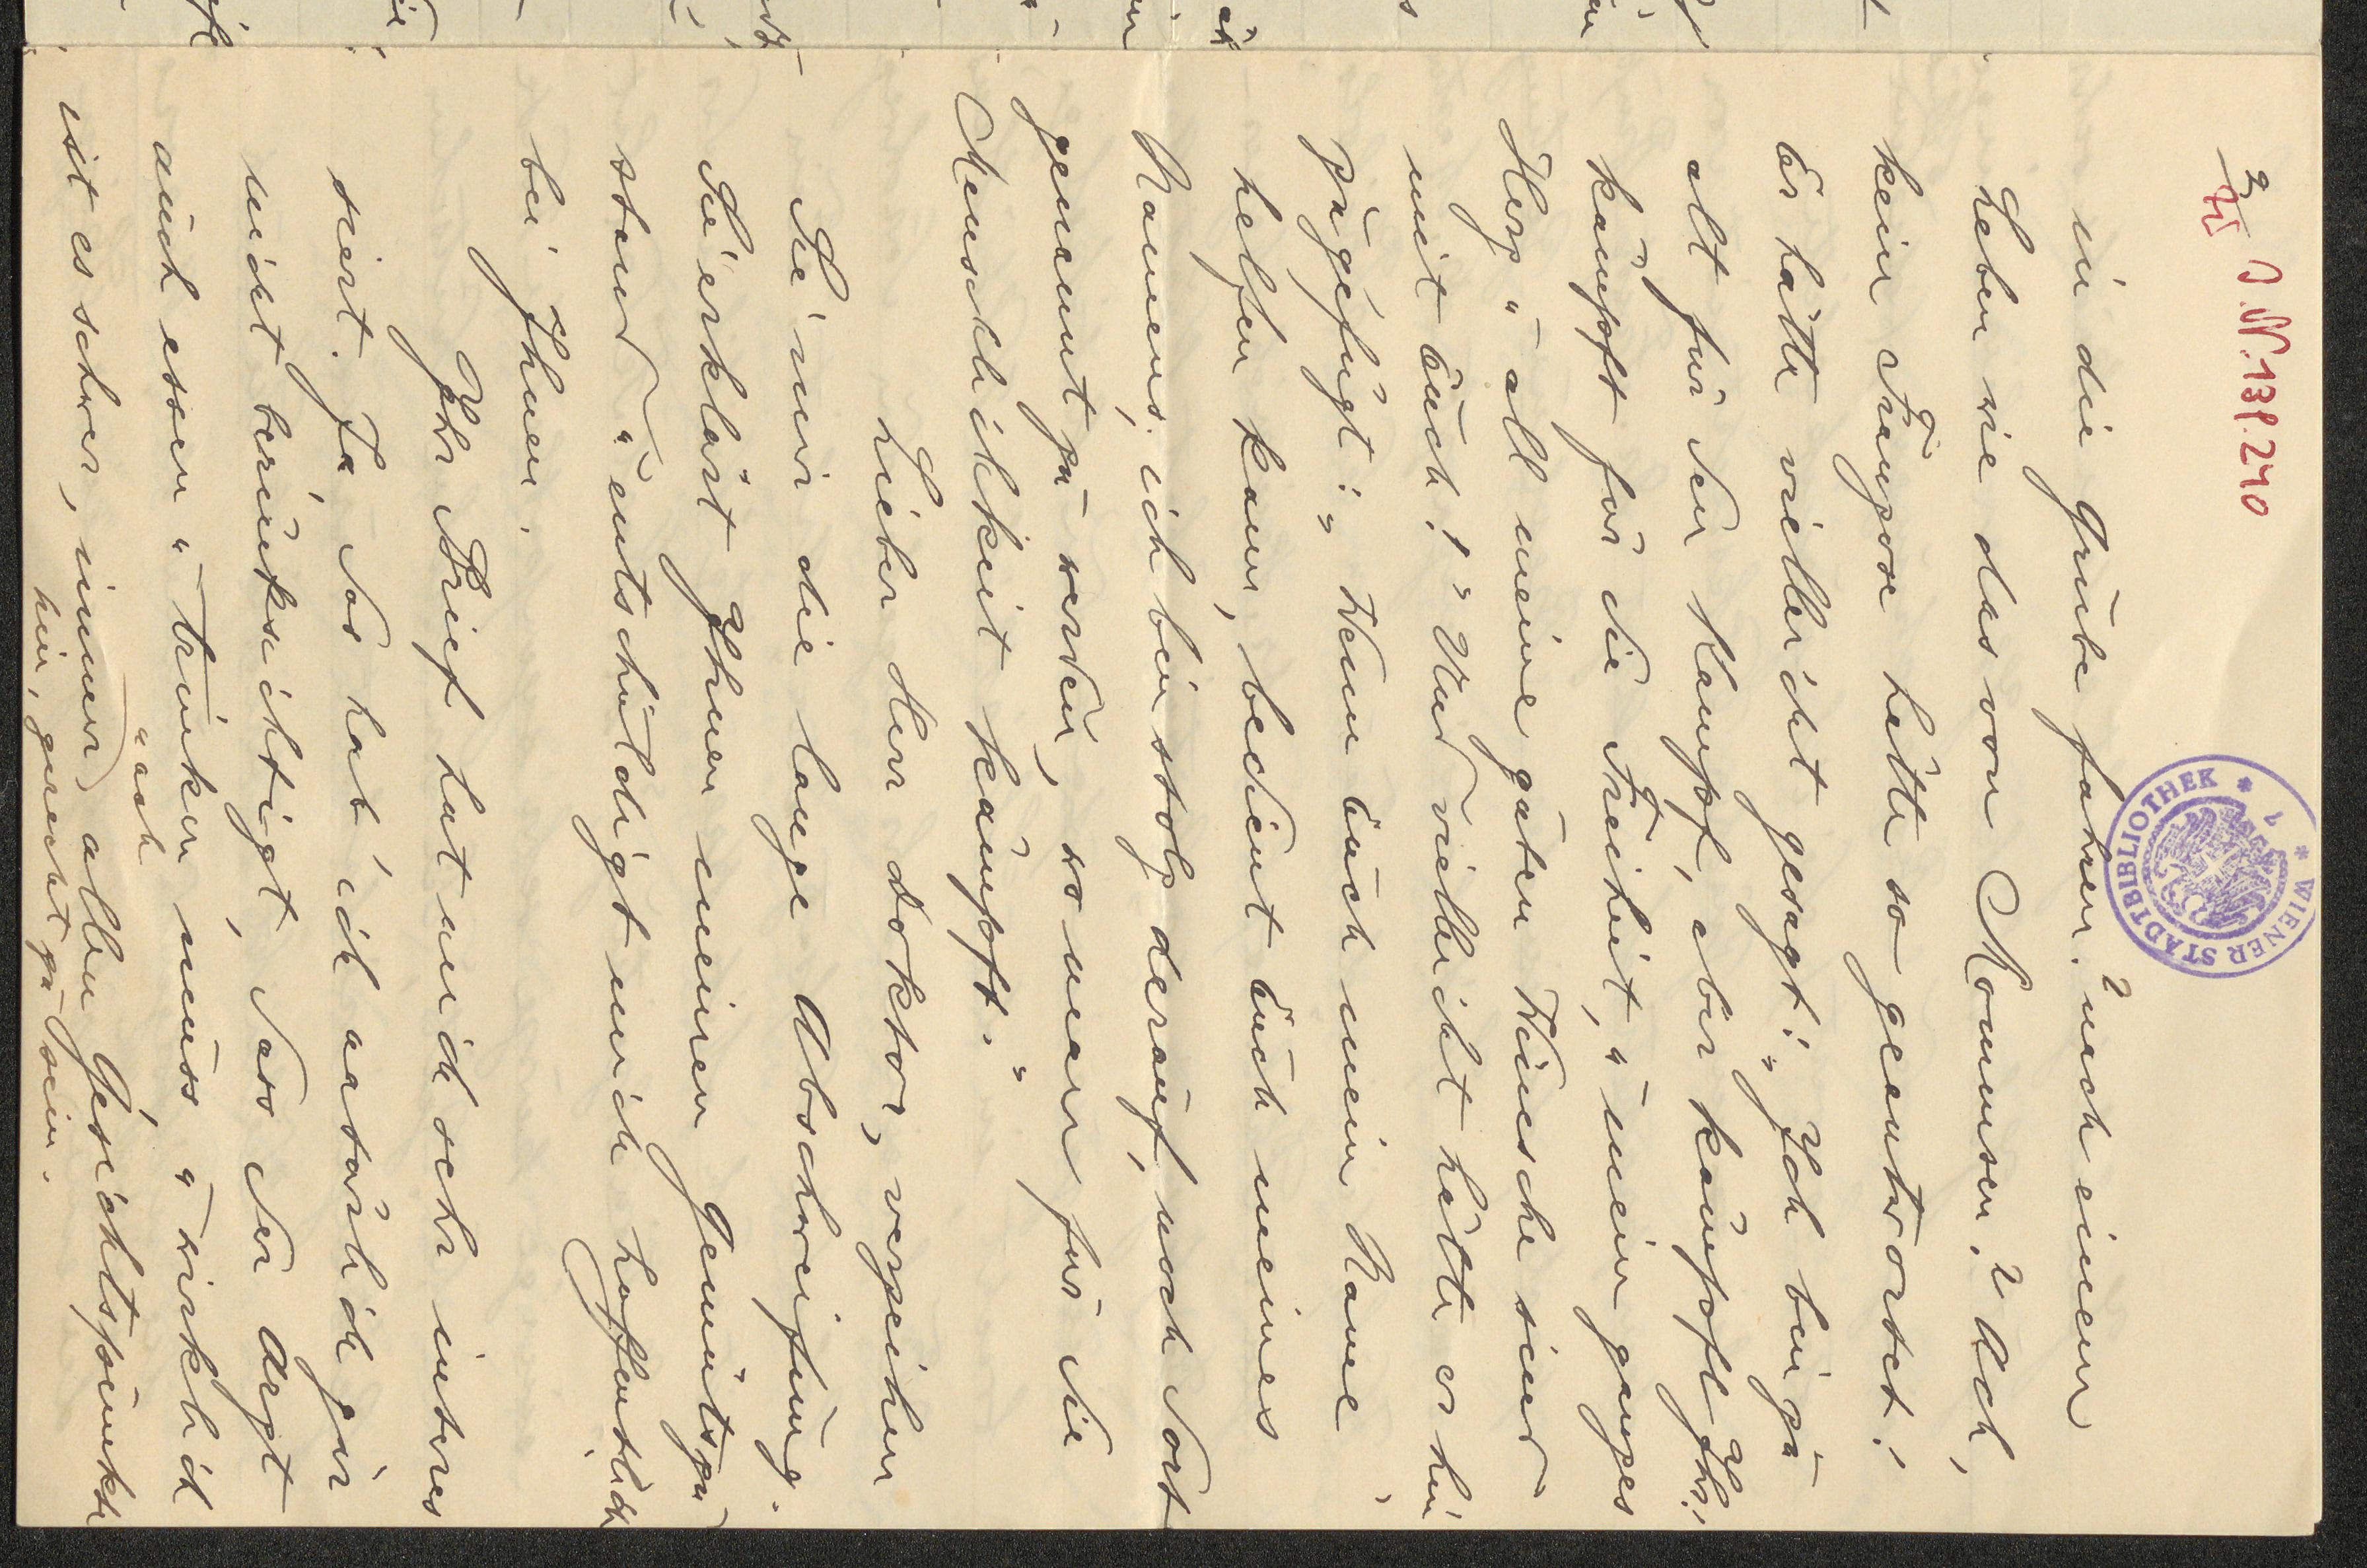 2
zu J.N. 138.240
WIENER STADTBIBLIOTHEK
in die Grube fahren? nach einem
Leben wie das von Momsen? Ach,
kein Franzose hätte so geantwortet!
Er hätte vielleicht gesagt: „Ich bin zu
alt für den Kampf, aber kämpft Ihr!
kämpft für die Freiheit, u mein ganzes
Herz u all meine guten Wünsche sind
mit Euch!“ Und vielleicht hätte er hin
zugefügt: „Wenn Euch mein Name
helfen kann, bedient Euch meines
Namens, ich bin stolz derauf, noch dort
genannt zu werden, wo man für die
Menschlichkeit kämpft.“
Lieber Herr Doktor, verzeihen
Sie mir die lange Abschweifung.
Sie erklärt Ihnen meinen Gemütszu
stand u entschuldigt mich hoffentlich
bei Ihnen.
Ihr Brief hat mich sehr interes
siert. Ja das hab' ich natürlich gar
nicht berücksichtigt, dass der Arzt
auch essen u trinken muss u wirklich
ist es schwer, immer allen Gesichtspunkten
nach
hin, gerecht zu sein.